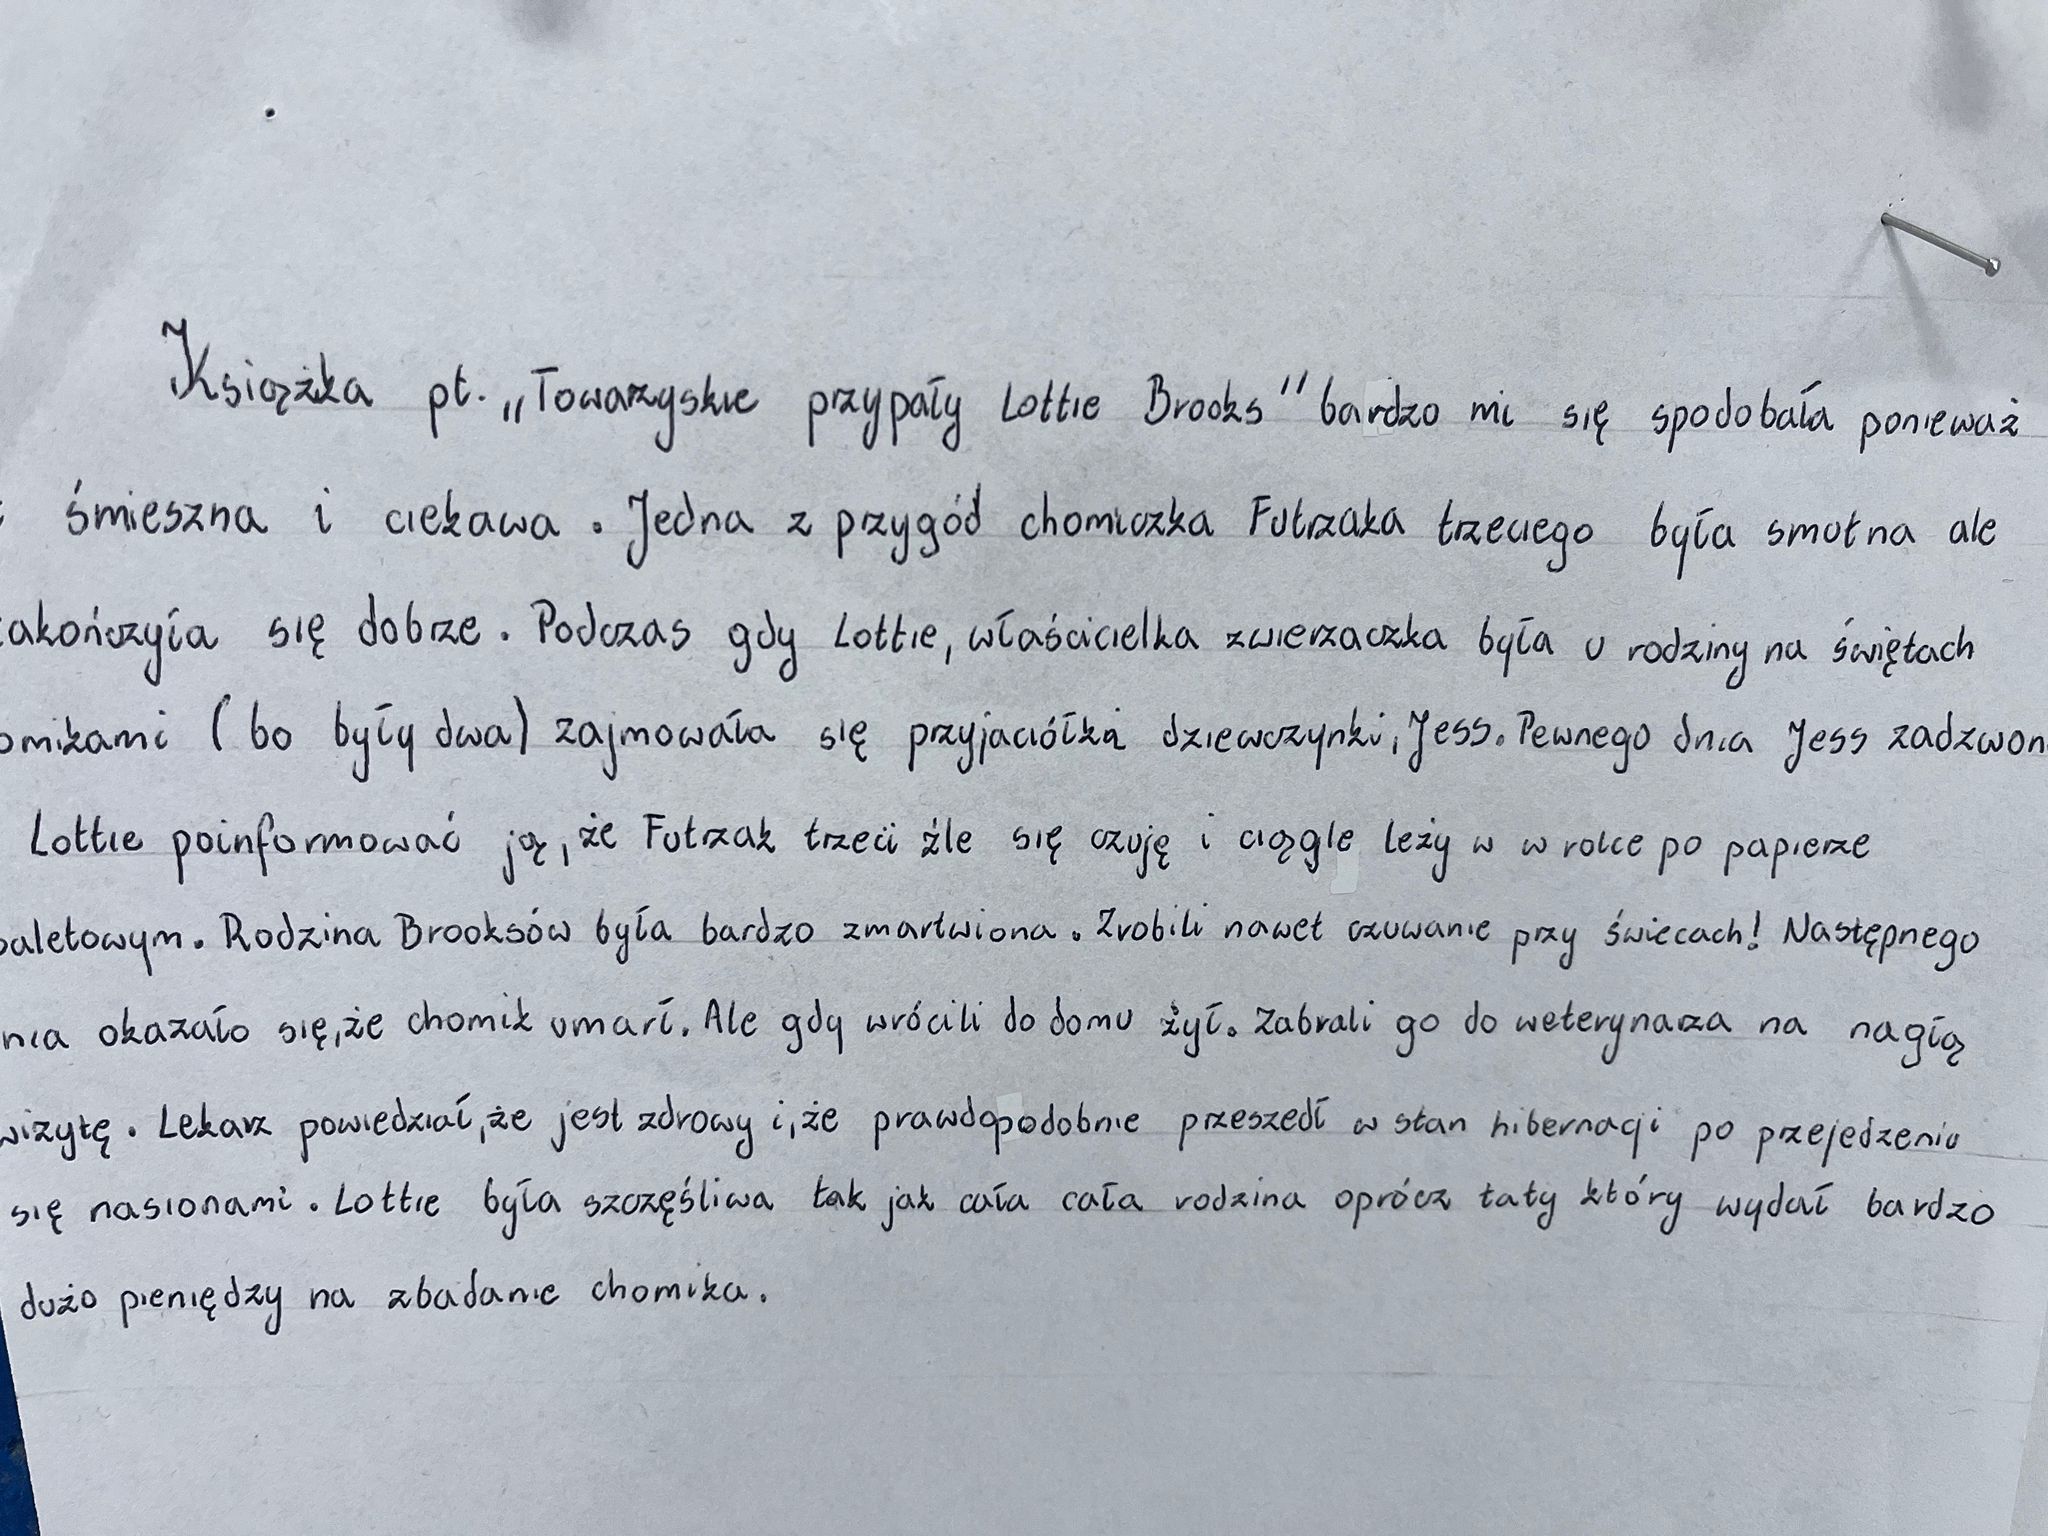 Książka pt. „Towarzyskie przypały Lottie Brooks" bardzo mi się spodobała ponieważ
śmieszna i ciekawa. Jedna z przygód chomiczka Futrzaka trzeciego była smutna ale
zakończyła się dobrze. Podczas gdy Lottie, właścicielka zwierzaczka była u rodziny na świętach
omikami (bo były dwa) zajmowała się przyjaciółka dziewczynki, Jess. Pewnego dnia Jess zadzwon
Lottie poinformować ją, że Futrzak trzeci źle się czuję i ciągle leży w w rolce po papierze
oaletowym. Rodzina Brooksów była bardzo zmartwiona. Zrobili nawet czuwanie przy świecach! Następnego
nia okazało się, że chomik umarł. Ale gdy wrócili do domu żył. Zabrali go do weterynarza na nagłą
wizytę. Lekarz powiedział, że jest zdrowy i, że prawdopodobnie przeszedł w stan hibernacji po przejedzeniu
się nasionami. Lottie była szczęśliwa tak jak cała cała rodzina oprócz taty który wydał bardzo
dużo pieniędzy na zbadanie chomika.